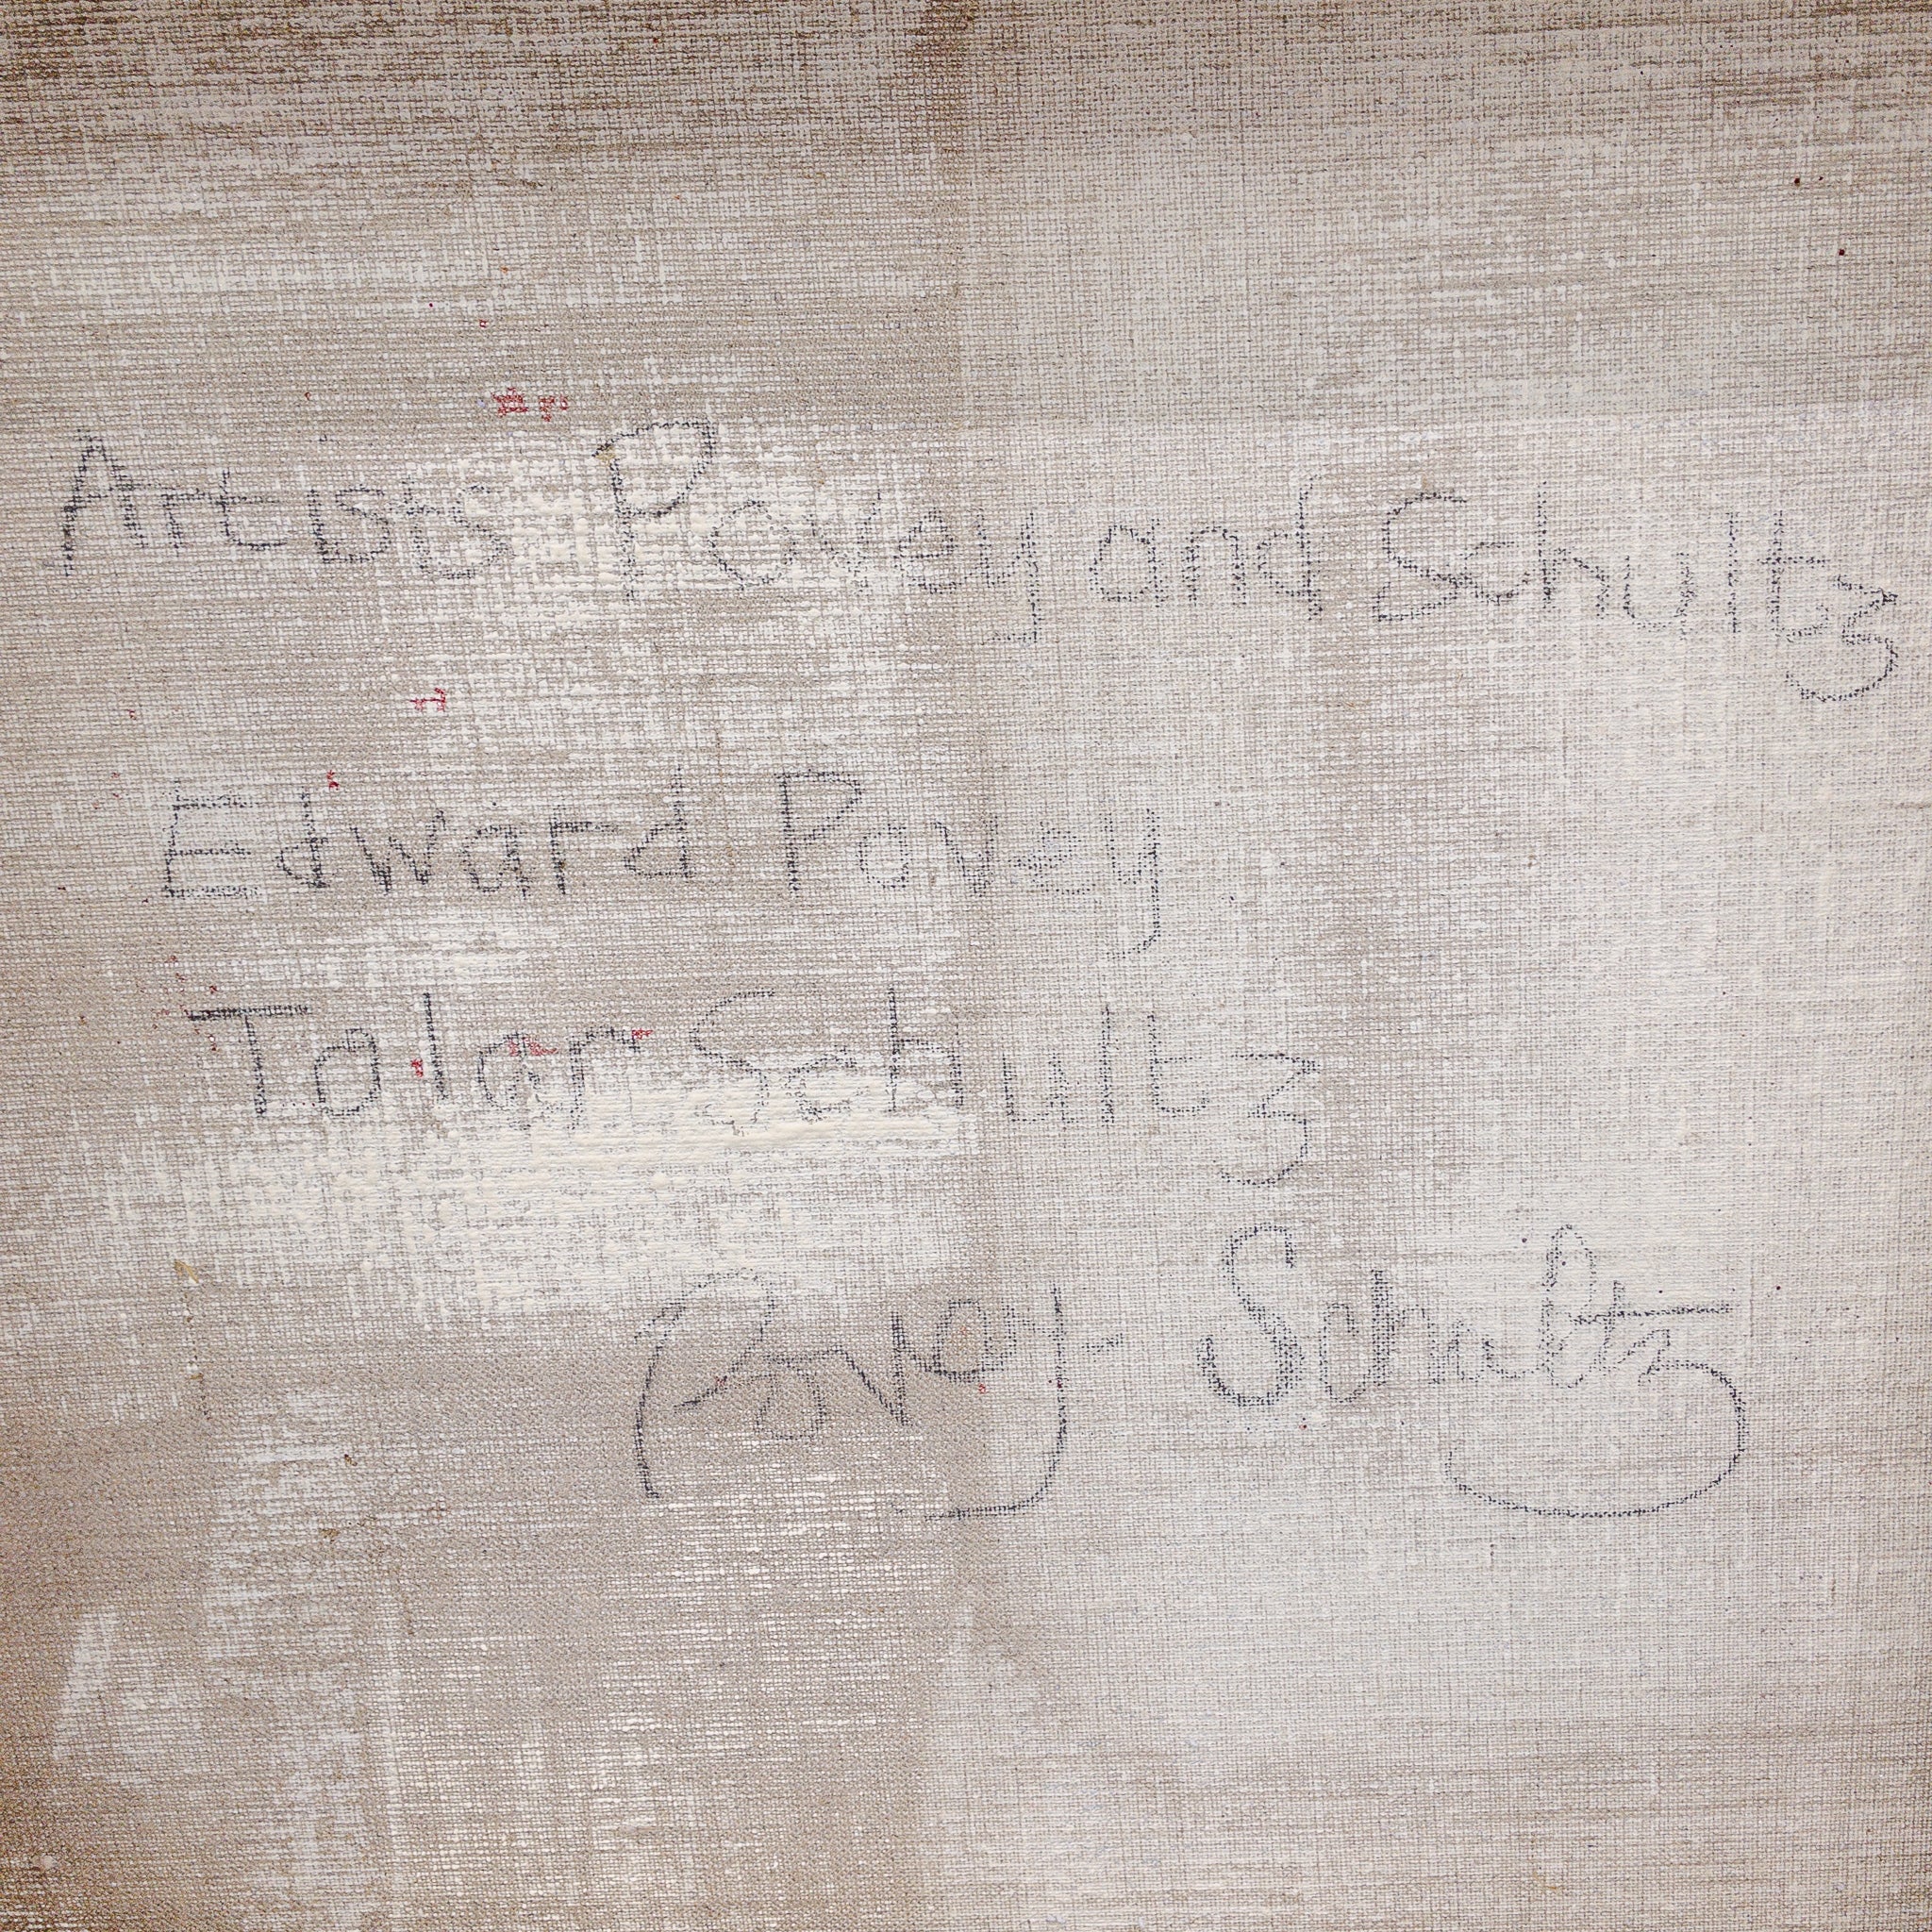 Artists Povey and Schultz
Edward Povey
Tolar Schultz
Povey - Schultz